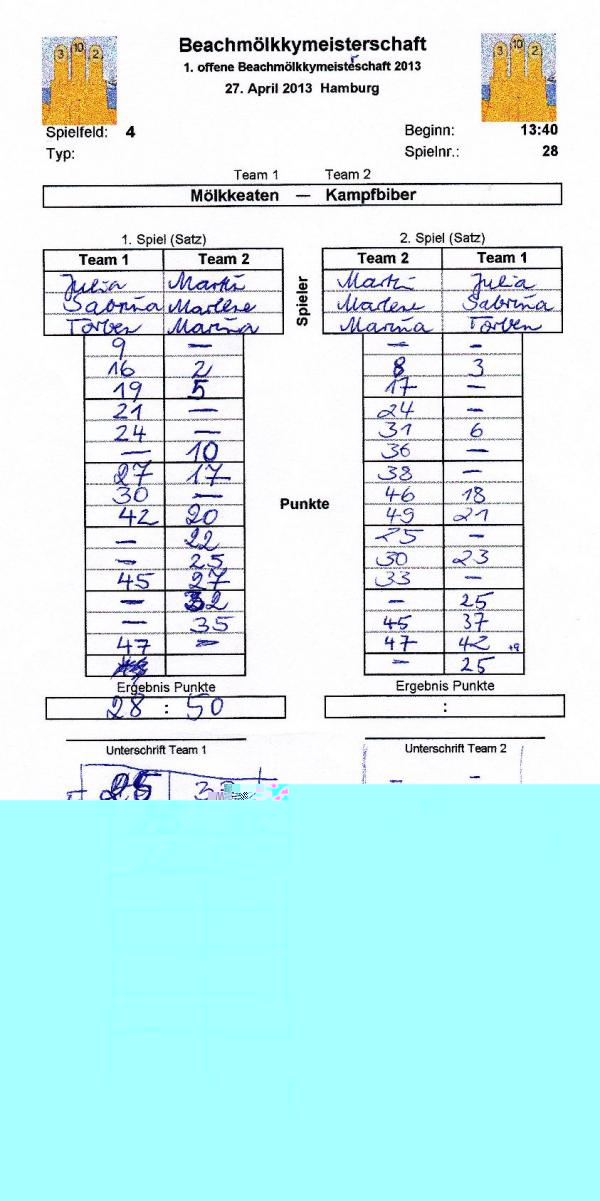 3 10 2
Beachmölkkymeisterschaft
3 10 2
1. offene Beachmölkkymeisteschaft 2013
r
27. April 2013 Hamburg
Spielfeld: 4 Beginn: 13:40
Typ: Spielnr.: 28
Team 1 Team 2
Mölkkeaten — Kampfbiber
1. Spiel (Satz) 2. Spiel (Satz)
Team 1 Team 2 Spieler Team 2 Team 1
Julia Martin Martin Julia
Sabrina Marlene Marlene Sabrina
Torben Marina Marina Torben
9 — — —
16 2 8 3
19 5 17 —
21 — 24 —
24 — 31 6
— 10 36 —
27 17 38 —
30 — 46 18
Punkte
42 20 49 21
— 22 25 —
— 25 30 23
45 27 33 —
— 32 — 25
— 35 45 37
47 — 47 42 +9
— 25
Ergebnis Punkte Ergebnis Punkte
28 : 50 :
Unterschrift Team 1 Unterschrift Team 2
25 — —